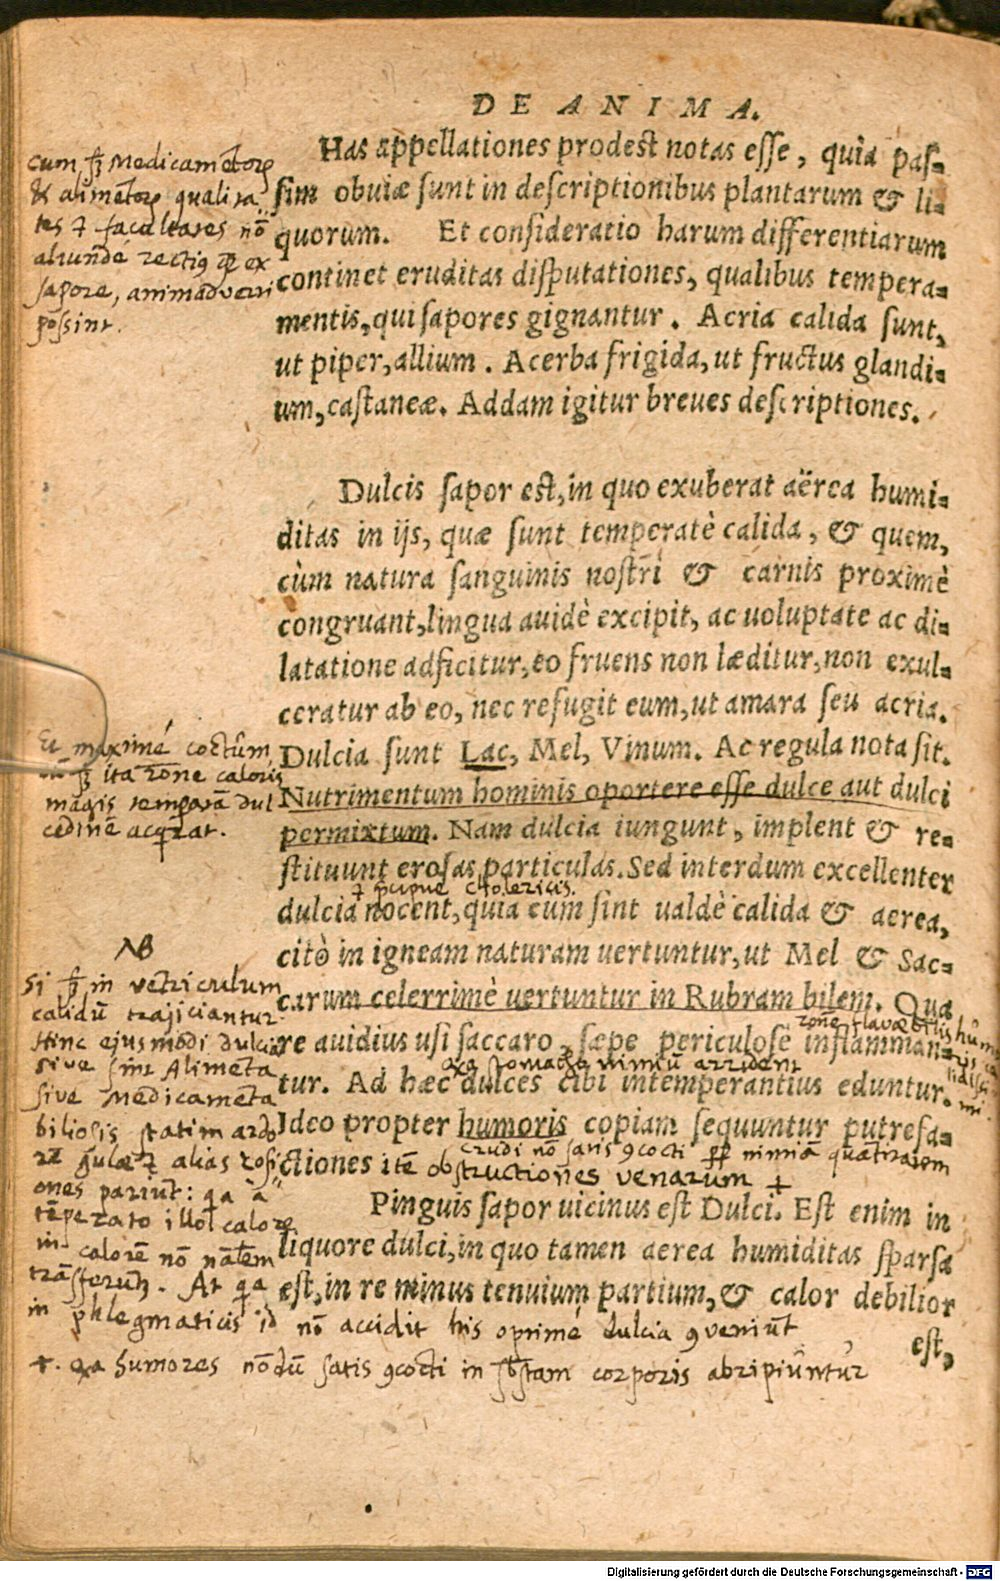 DE ANIMA.
Has appellationes prodest notas esse, quia pas-
sim obuiæ sunt in descriptionibus plantarum & li-
quorum. Et consideratio harum differentiarum
continet eruditas disputationes, qualibus tempera-
mentis, qui sapores gignantur. Acria calida sunt,
ut piper, allium. Acerba frigida, ut fructus glandi-
um, castaneæ. Addam igitur breues descriptiones.
cum Medicamētorꝫ
& alimētorꝫ qualita
tes facultates nō
aliundè rectiꝰ ex
sapore, animadverti
possint.
Dulcis sapor est, in quo exuberat aërea humi-
ditas in ijs, quæ sunt temperatè calida, & quem,
cùm natura sanguinis nostri & carnis proximè
congruant, lingua auidè excipit, ac uoluptate ac di-
latatione adficitur, eo fruens non læditur, non exul-
ceratur ab eo, nec refugit eum, ut amara seu acria.
Dulcia sunt Lac, Mel, Vinum. Ac regula nota sit.
Nutrimentum hominis oportere esse dulce aut dulci
permixtum. Nam dulcia iungunt, implent & re-
stituunt erosas particulas. Sed interdum excellenter
p̄cipue cholericis.
dulcia nocent, quia cum sint ualdè calida & aerea,
citò in igneam naturam uertuntur, ut Mel & Sac-
carum celerrimè uertuntur in Rubram bilem. Qua
re auidius usi saccaro, sæpe periculose inflamman-
tur. Ad hæc dulces cibi intemperantius eduntur.
Ideo propter humoris copiam sequuntur putrefa-
ctiones itē obstructiones venarum +
Et maximé coctūm
ita rōne caloris
magis temperatā dul
cedinē acqrat.
NB
Si in vētriculum
calidū trajiciantur
Hinc ejusmodi dulcia
sive sint Alimēta
sive Medicamēta
biliosis statim ardo
rē gulæ alias
ones pariūt: qa à
tēperato illoꝫ calore
in calorē nō nālem
trāsferunt. At qa
in phlegmaticis id nō accidit his oprimé dulcia ꝯveniūt
rōne flavæ bilis
stomacho nimiū arrident
crudi nō satis ꝯcocti nimiā quātitatem
Pinguis sapor uicinus est Dulci. Est enim in
liquore dulci, in quo tamen aerea humiditas sparsa
est, in re minus tenuium partium, & calor debilior
est,
+. qa humores nōdū satis ꝯcocti in sbstam corporis abripiūntur
Digitalisierung gefördert durch die Deutsche Forschungsgemeinschaft - DFG